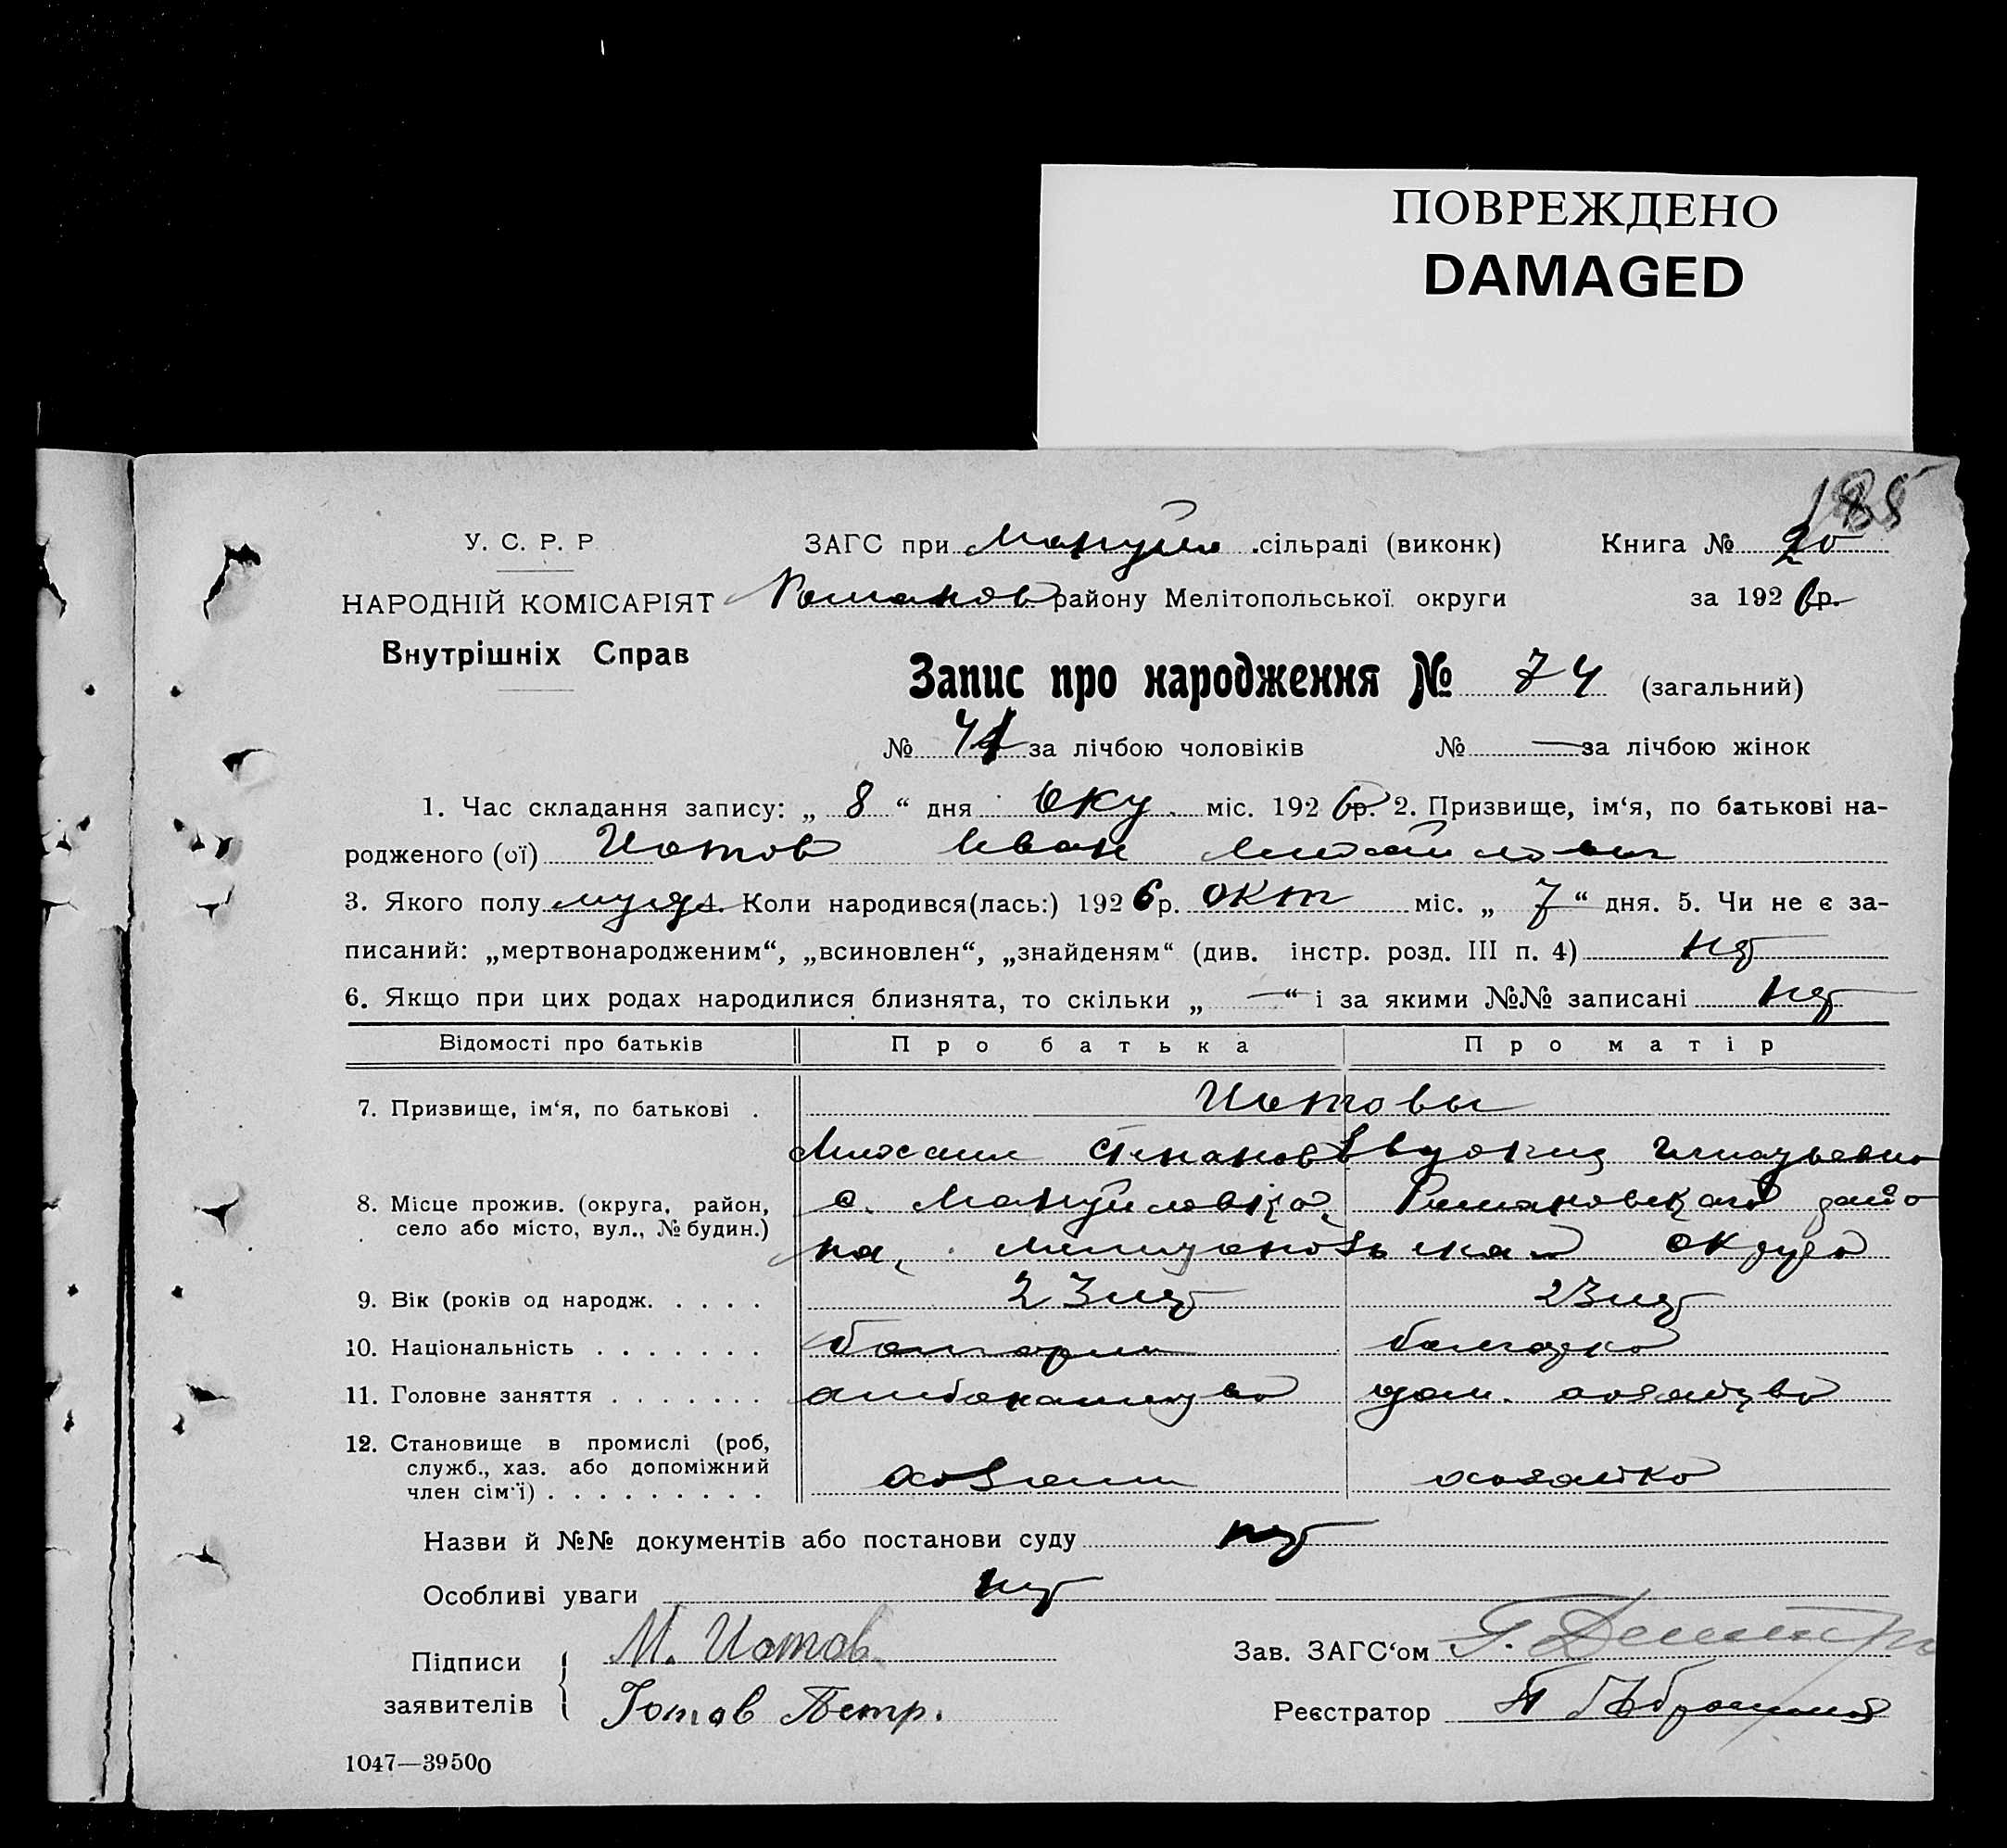 ПОВРЕЖДЕНО
DAMAGED
185
У. С. Р. Р
ЗАГС при Мануйл .сільраді (виконк)
Книга № 20
НАРОДНІЙ КОМІСАРІЯТ
Романов району Мелітопольської округи
за 192 6 р.
Внутрішніх Справ
Запис про народження № 74 (загальний)
№ 41 за лічбою чоловіків № — за лічбою жінок
1. Час складання запису: „ 8 “ дня Окт. міс. 192 6 р. 2. Призвище, ім‘я, по батькові на-
родженого (ої) Иотов Иван Михайлович
3. Якого полу муж 4. Коли народився(лась:) 192 6 р. окт міс. „ 7 “ дня. 5. Чи не є за-
писаний: „мертвонародженим“, „всиновлен“, „знайденям“ (див. інстр. розд. III п. 4) нет
6. Якщо при цих родах народилися близнята, то скільки „ — “ і за якими №№ записані нет
Відомості про батьків Про батька Про матір
7. Призвище, ім‘я, по батькові . Иотовы
Михаил Степанов Евдокия Игнатьевна
8. Місце прожив. (округа, район, с. Мануйловка, Романовского райо
село або місто, вул., № будин.)
на, округа
9. Вік (років од народж. . . . . 23 лет 23 лет
10. Національність . . . . . . . болгарин болгарка
11. Головне заняття . . . . . . . хлебопашество дом. хозяйство
12. Становище в промислі (роб,
служб., хаз. або допоміжний хозяин хозяйка
член сім‘ї) . . . . . . . . .
Назви й №№ документів або постанови суду нет
Особливі уваги нет
Підписи М. Иотов
Зав. ЗАГС‘ом Г.
заявителів Іотов Петр.
Реєстратор
1047—39500